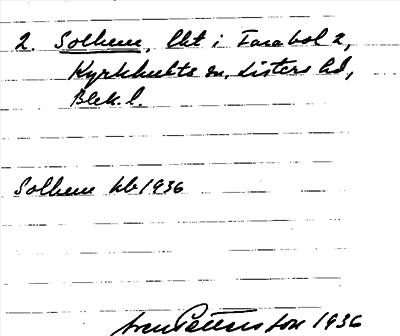 2. Solhem, lht i Farabol 2,
Kyrkhults sn, Listers hd,
Blek. l.
Solhem kb 1936
Sven Petterson 1936